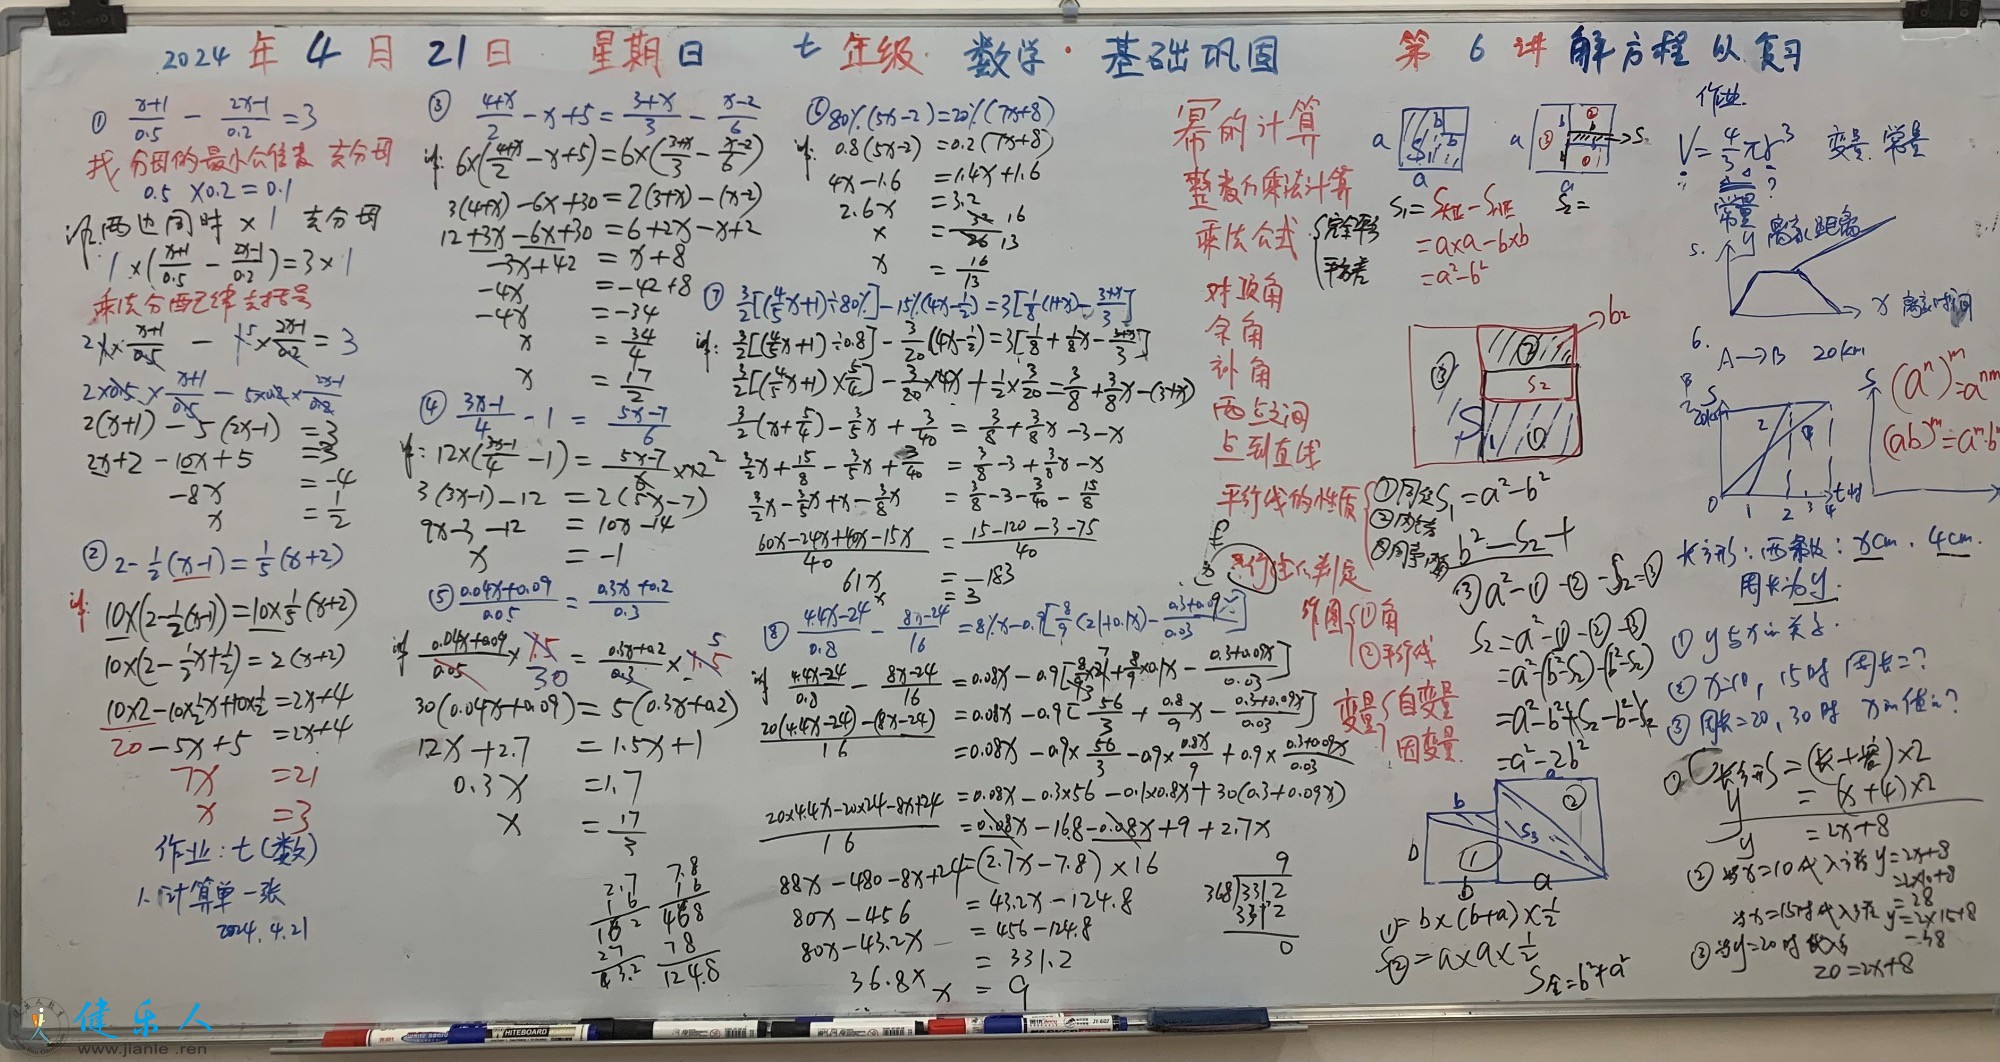 2024年4月21日 星期日 七年级 数学·基础巩固 第6讲 解方程以复习
① (x+1)/0.5 - (2x-1)/0.2 = 3
找分母的最小公倍数 去分母
0.5×0.2=0.1
两边同时×1 去分母
1×((x+1)/0.5 - (2x-1)/0.2)=3×1
乘法分配律去括号
2(x+1)-5(2x-1)=3
2x+2-10x+5=3
-8x=-4
x=1/2
② 2-1/2(x-1)=1/5(x+2)
10×(2-1/2(x-1))=10×1/5(x+2)
10×(2-1/2x+1/2)=2(x+2)
10×2-10×1/2x+10×1/2=2x+4
20-5x+5=2x+4
7x=21
x=3
作业:七(数)
1.计算单一张
2024.4.21
③ (4+x)/2-x+5=(3+x)/3-(x-2)/6
6×((4+x)/2-x+5)=6×((3+x)/3-(x-2)/6)
3(4+x)-6x+30=2(3+x)-(x-2)
12+3x-6x+30=6+2x-x+2
-3x+42=x+8
-4x=-42+8
-4x=-34
x=34/4
x=17/2
④ (3x-1)/4-1=(5x-7)/6
12×((3x-1)/4-1)=(5x-7)/6×12 2
3(3x-1)-12=2(5x-7)
9x-3-12=10x-14
x=-1
⑤ (0.04x+0.09)/0.05=(0.3x+0.2)/0.3
30(0.04x+0.09)=5(0.3x+0.2)
12x+2.7=1.5x+1
0.3x=1.7
x=17/3
⑥ 80%(5x-2)=20%(7x+8)
0.8(5x-2)=0.2(7x+8)
4x-1.6=1.4x+1.6
2.6x=3.2
x=32/26 16 13
x=16/13
⑦ 3/2[(4/5x+1)÷80%]-15%(4x-1/2)=3[1/8(1+x)-(3+x)/3]
3/2[(4/5x+1)÷0.8]-3/20(4x-1/2)=3[1/8+1/8x-(3+x)/3]
3/2[(4/5x+1)×5/4]-3/20×4x+1/2×3/20=3/8+3/8x-(3+x)
3/2(x+5/4)-3/5x+3/40=3/8+3/8x-3-x
3/2x+15/8-3/5x+3/40=3/8-3+3/8x-x
3/2x-3/5x+x-3/8x=3/8-3-3/40-15/8
(60x-24x+40x-15x)/40=(15-120-3-75)/40
61x=-183
x=3
⑧ (4.4x-24)/0.8-(8x-24)/16
(4.4x-24)/0.8-(8x-24)/16=0.08x-0.9
(20(4.4x-24)-(8x-24))/16=0.08x-0.9[56/3+0.8/9x-(0.3+0.09x)/0.03]
=0.08x-0.9×56/3-0.9×0.8x/9+0.9×(0.3+0.09x)/0.03
(20×4.4x-20×24-8x+24)/16=0.08x-0.3×56-0.1×0.8x+30(0.3+0.09x)
=0.08x-16.8-0.08x+9+2.7x
88x-480-8x+24=(2.7x-7.8)×16
80x-456=43.2x-124.8
80x-43.2x=456-124.8
36.8x=331.2
x=9
2.7
16
162
27
43.2
7.8
16
468
78
124.8
9
368)3312
3312
0
幂的计算
整数的乘法计算
乘法公式 完全平方
平方差
对顶角
余角
补角
两点之间
点到直线
平行线的性质 ①同位
②内错
③同旁内
平行线的判定
作图 ①角
②平行线
变量 自变量
因变量
a b b S1 a
a b ① ② ③ S2 a
S1=S大正-S小正
=a×a-b×b
=a²-b²
S2=
b²
③ ② S2 ① S1
S1=a²-b²
b²-S2
③a²-①-②-S2=③
S2=a²-①-②-③
=a²-(b²-S2)-(b²-S2)
=a²-b²+S2-b²-S2
=a²-2b²
a b ② S3 b ① b a
①=b×(b+a)×1/2
②=a×a×1/2
S全=b²+a²
作业
V=4/3πr³ 变量 常量
常量
5. y 离家距离
x 离家时间
6. A→B 20km
S 20km 0 1 2 3 4 t时
S
(aⁿ)ᵐ=aⁿᵐ
(ab)ᵐ=aᵐ·b
长方形:两条边:xcm,4cm.
周长为y.
①y与x的关系.
②x=10,15时 周长=?
③周长=20,30时 x的值=?
①C长方形=(长+宽)×2
y=(x+4)×2
y=2x+8
②当x=10代入方程y=2x+8
=2×10+8
=28
当x=15时代入方程y=2×15+8
=38
③当y=20时 代入
20=2x+8
健乐人
www.jianle.ren